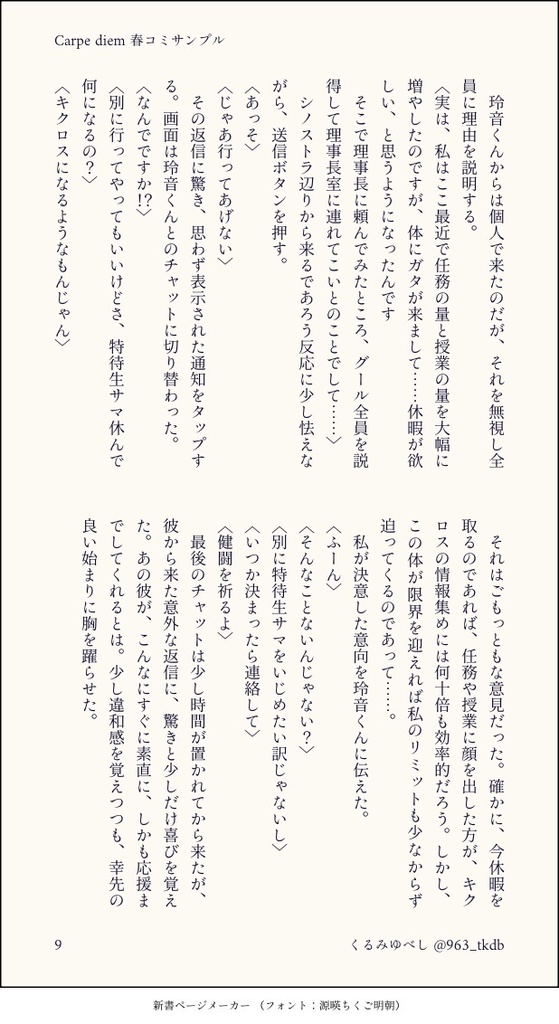 Carpe diem 春コミサンプル
　玲音くんからは個人で来たのだが、それを無視し全
員に理由を説明する。
〈実は、私はここ最近で任務の量と授業の量を大幅に
増やしたのですが、体にガタが来まして……休暇が欲
しい、と思うようになったんです
　そこで理事長に頼んでみたところ、グール全員を説
得して理事長室に連れてこいとのことでして……〉
　シノストラ辺りから来るであろう反応に少し怯えな
がら、送信ボタンを押す。
〈あっそ〉
〈じゃあ行ってあげない〉
　その返信に驚き、思わず表示された通知をタップす
る。画面は玲音くんとのチャットに切り替わった。
〈なんでですか!?〉
〈別に行ってやってもいいけどさ、特待生サマ休んで
何になるの？〉
〈キクロスになるようなもんじゃん〉
　それはごもっともな意見だった。確かに、今休暇を
取るのであれば、任務や授業に顔を出した方が、キク
ロスの情報集めには何十倍も効率的だろう。しかし、
この体が限界を迎えれば私のリミットも少なからず
迫ってくるのであって……。
　私が決意した意向を玲音くんに伝えた。
〈ふーん〉
〈そんなことないんじゃない？〉
〈別に特待生サマをいじめたい訳じゃないし〉
〈いつか決まったら連絡して〉
〈健闘を祈るよ〉
　最後のチャットは少し時間が置かれてから来たが、
彼から来た意外な返信に、驚きと少しだけ喜びを覚え
た。あの彼が、こんなにすぐに素直に、しかも応援ま
でしてくれるとは。少し違和感を覚えつつも、幸先の
良い始まりに胸を躍らせた。
9
くるみゆべし @963_tkdb
新書ページメーカー （フォント：源暎ちくご明朝）